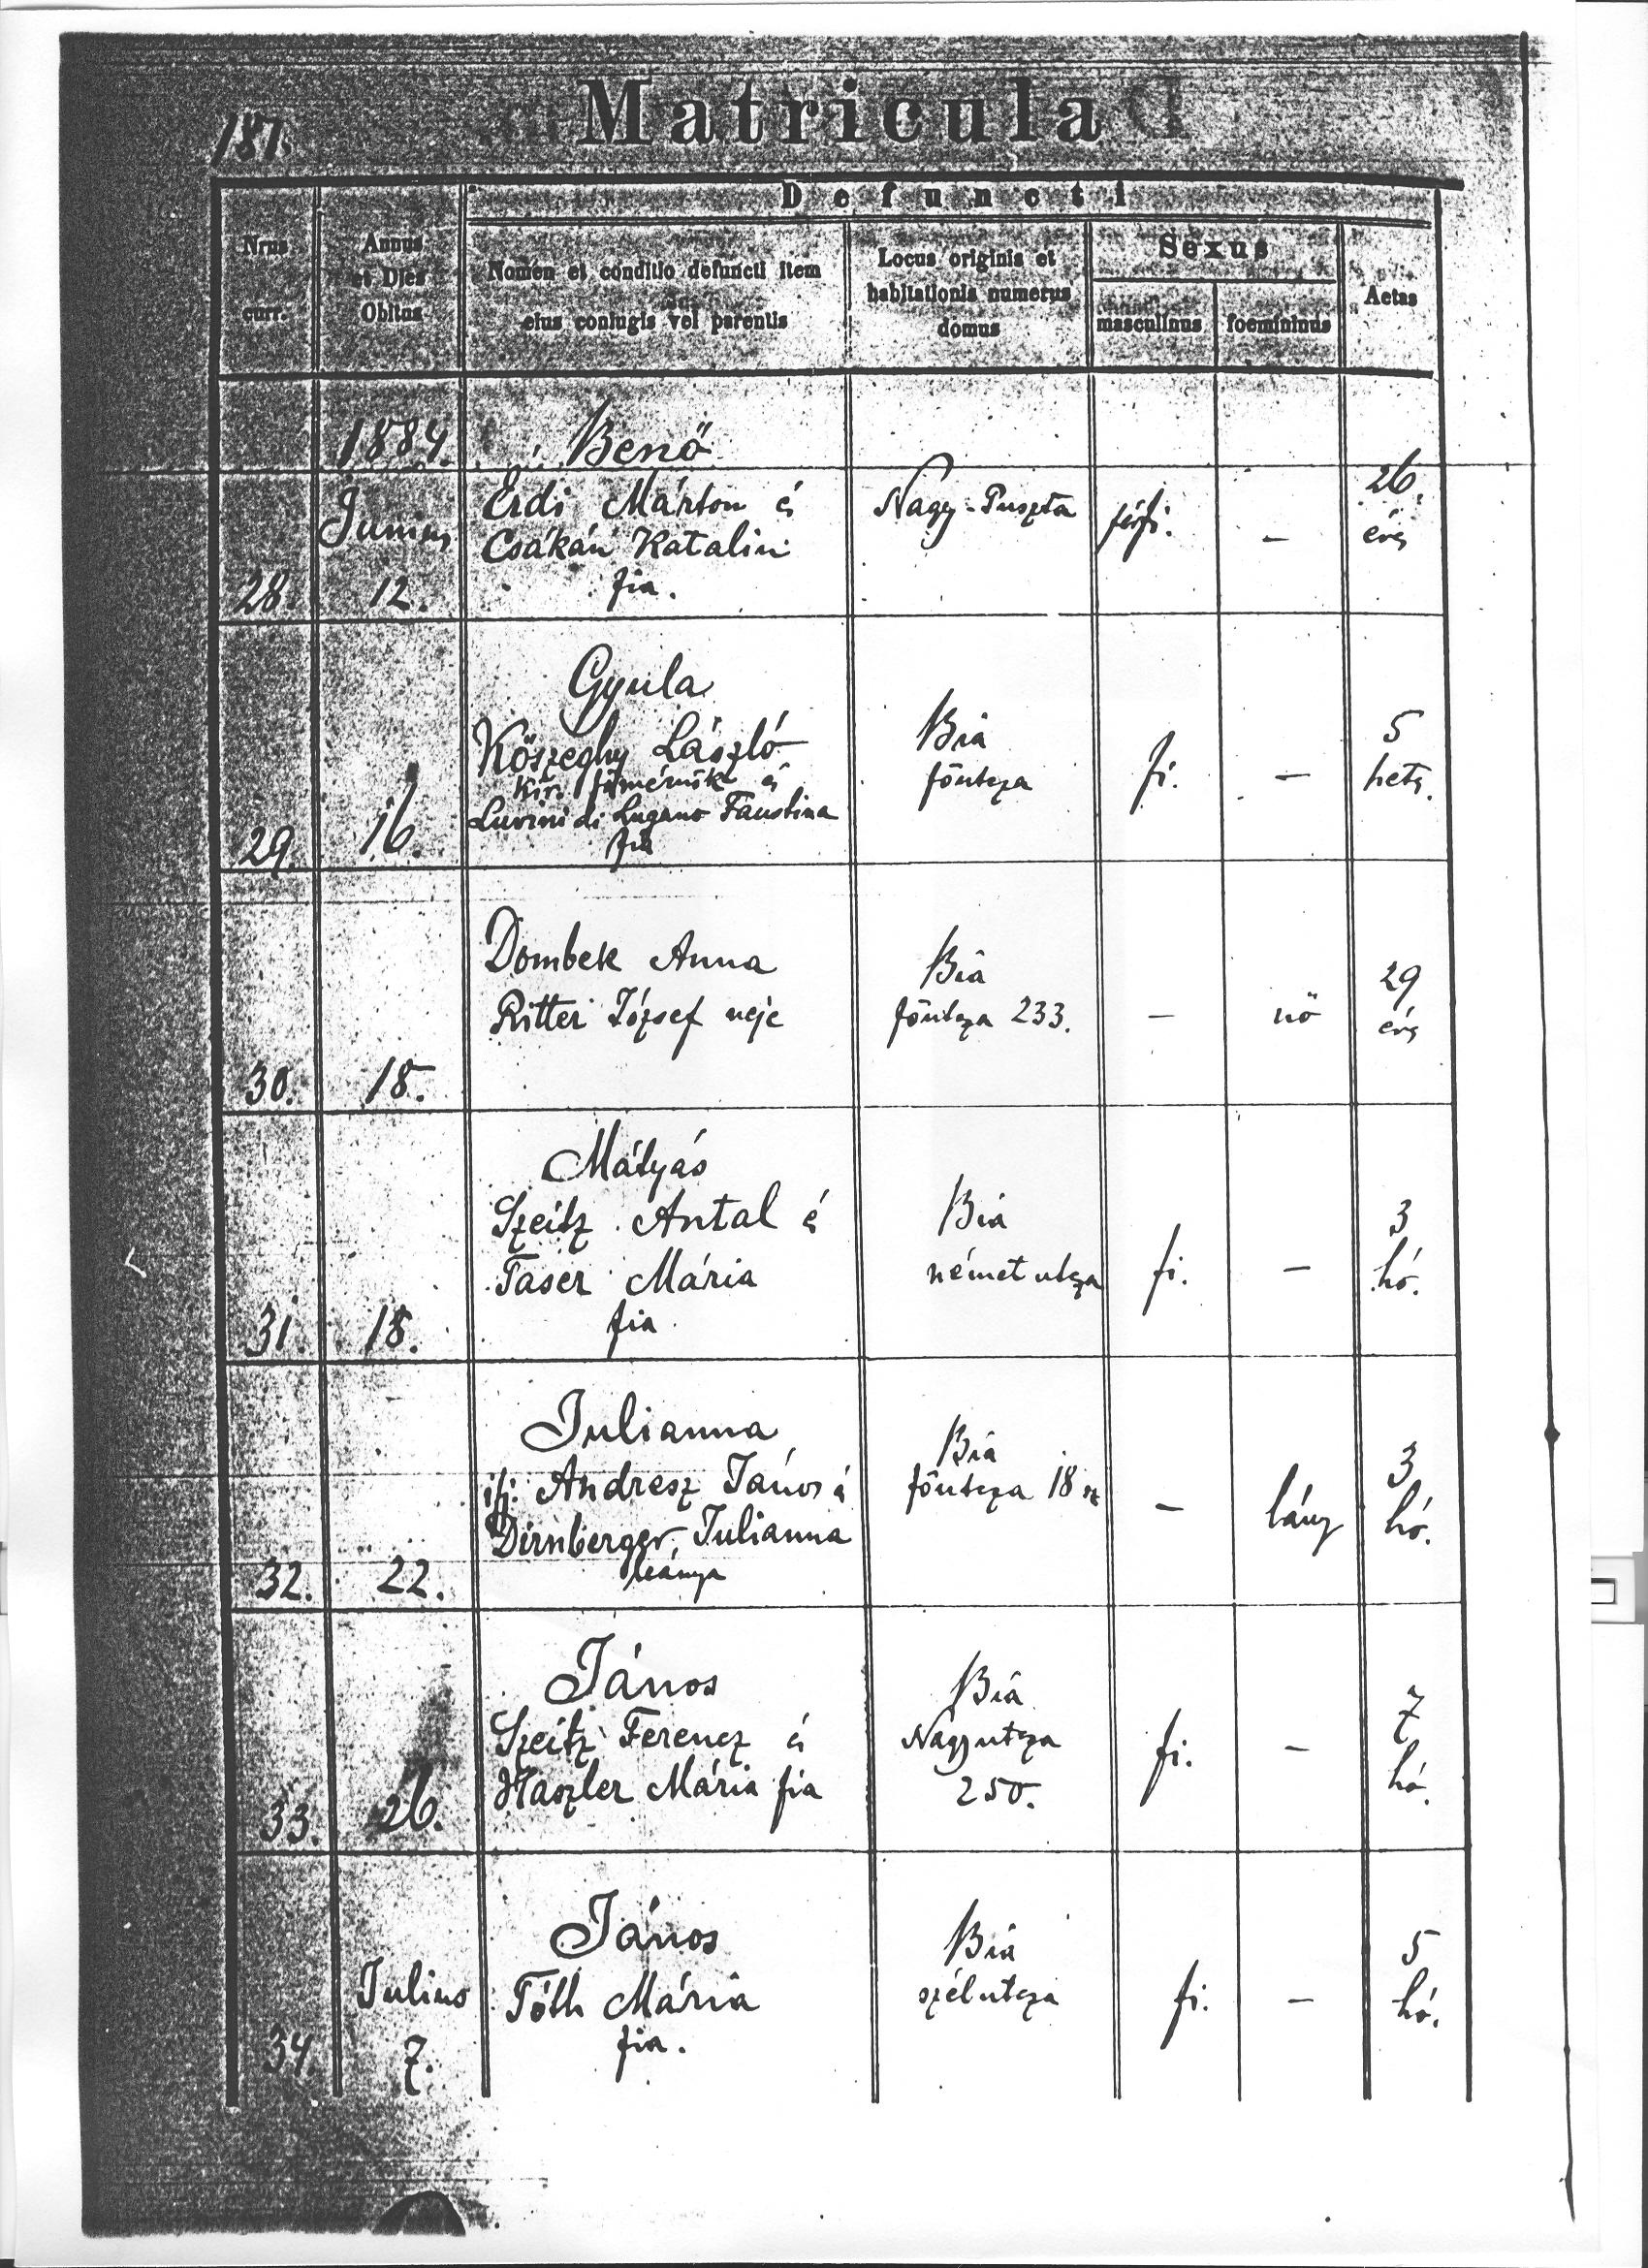 187
Matricula
Defuncti
Nrus
curr.
Annus
et Dies
Obitus
Nomen et conditio defuncti item
eius coniugis vel parentis
Locus originis et
habitationis numerus
domus
Sexus
masculinus
foemininus
Aetas
1884.
Junius
28.
12.
Benő
Erdi Márton és
Csákán Katalin
fia.
Nagy-Puszta
férfi.
–
26.
éves
29.
16.
Gyula
Kőszeghy László
kir. főmérnök és
Luvini di Lugano Faustina
fia
Bia
főutcza
fi.
–
5
hets.
30.
18.
Dombek Anna
Ritter József neje
Bia
főutcza 233.
–
nő
29
éves
31.
18.
Mátyás
Szeitz Antal é
Taser Mária
fia
Bia
német utcza
fi.
–
3
hó.
32.
22.
Julianna
ifj. Andresz János é
Dirnberger Julianna
leánya
Bia
főutcza 18 sz
–
lány
3
hó.
33.
26.
János
Szeitz Ferencz és
Haszler Mária fia
Bia
Nagyutcza
250.
fi.
–
7
hó.
34.
Julius
7.
János
Tóth Mária
fia.
Bia
szélutcza
fi.
–
5
hó.